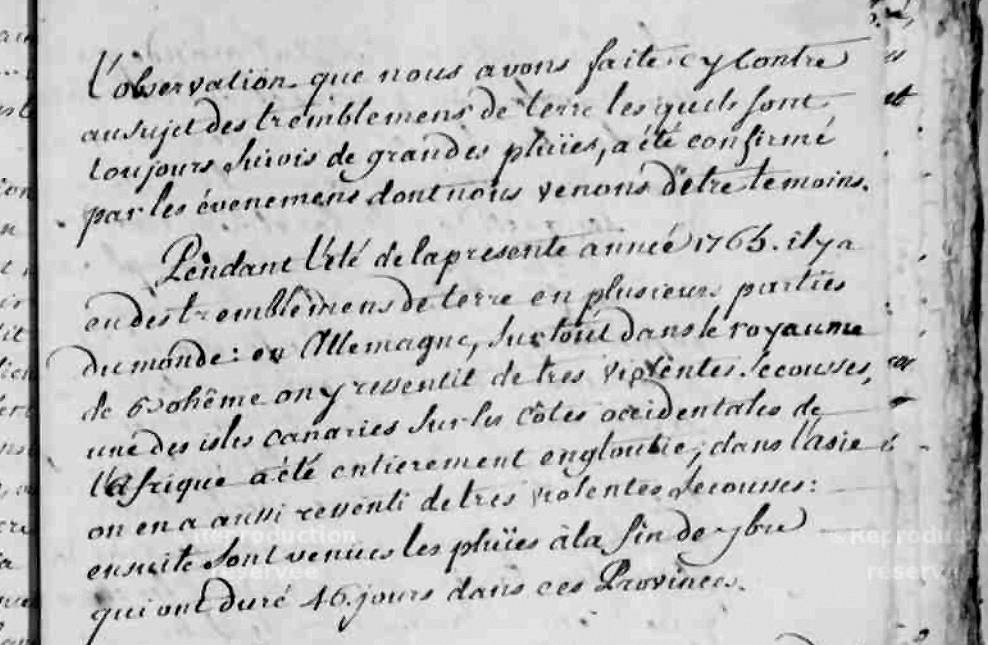 L'observation que nous avons faite cy contre
au sujet des tremblemens de terre les quels sont
toujours suivis de grandes pluïes, a été confirmé
par les évenemens dont nous venons d'etre temoins.
Pendant l'été de la presente année 1763. il y a
eu des tremblemens de terre en plusieurs parties
du monde : en Allemagne, surtout dans le royaume
de Bohême on y ressentit de tres violentes secousses,
une des isles canaries sur les côtes occidentales de
l'Afrique a été entierement engloutie ; dans l'asie
on en a aussi ressenti de tres violentes secousses :
ensuite sont venues les pluïes à la fin de 9bre
qui ont duré 46. jours dans ces Provinces.